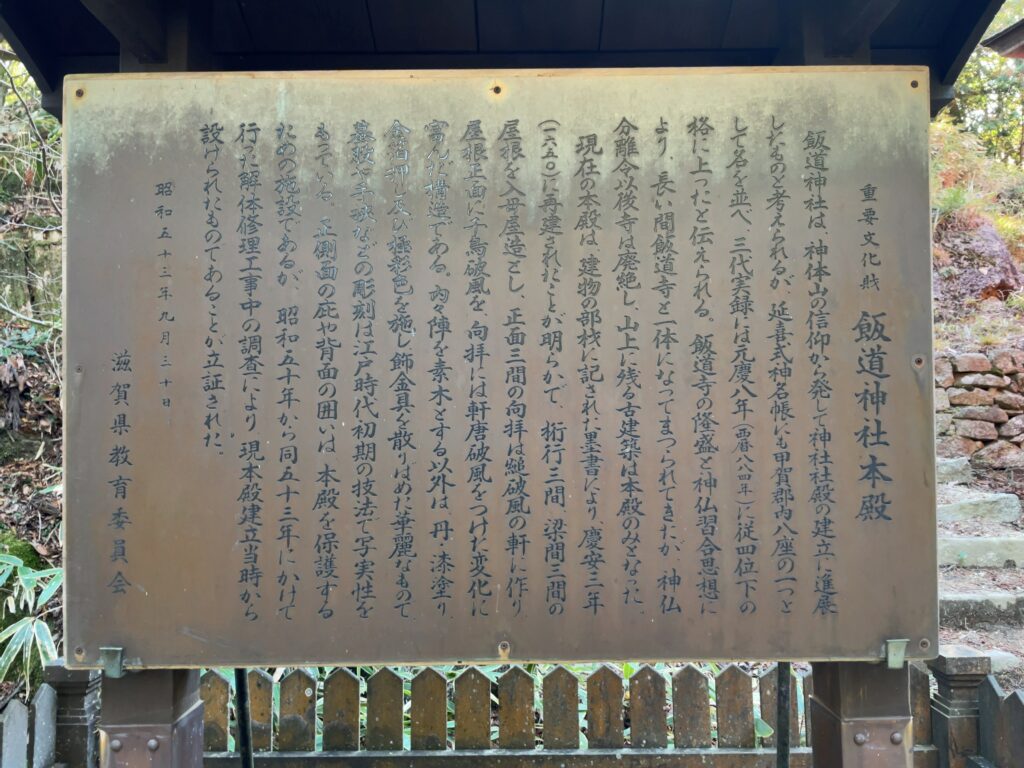 重要文化財 飯道神社本殿
飯道神社は、神体山の信仰から発して神社社殿の建立に進展
したものと考えられるが、延喜式神名帳にも甲賀郡内八座の一つと
して名を並べ、三代実録には元慶八年(西暦八八四年)に従四位下の
格に上ったと伝えられる。飯道寺の隆盛と神仏習合思想に
より、長い間飯道寺と一体になってまつられてきたが、神仏
分離令以後寺は廃絶し、山上に残る古建築は本殿のみとなった。
現在の本殿は、建物の部材に記された墨書により、慶安三年
(一六五〇)に再建されたことが明らかで、桁行三間、梁間三間の
屋根を入母屋造とし、正面三間の向拝は縋破風の軒に作り、
屋根正面に千鳥破風を、向拝には軒唐破風をつけた変化に
富んだ構造である。内々陣を素木とする以外は、丹、漆塗り、
金箔押し及び極彩色を施し飾金具を散りばめた華麗なもので、
蟇股や手挟などの彫刻は江戸時代初期の技法で写実性を
もっている。正側面の庇や背面の囲いは、本殿を保護する
ための施設であるが、昭和五十年から同五十三年にかけて
行った解体修理工事中の調査により、現本殿建立当時から
設けられたものであることが立証された。
昭和五十三年九月三十日
滋賀県教育委員会